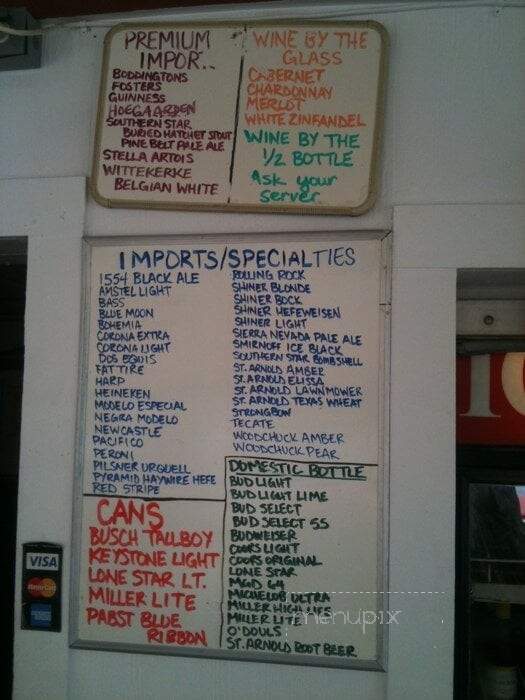 PREMIUM
IMPOR..
BODDINGTONS
FOSTERS
GUINNESS
HOEGAARDEN
SOUTHERN STAR
BURIED HATCHET STOUT
PINE BELT PALE ALE
STELLA ARTOIS
WITTEKERKE
BELGIAN WHITE
WINE BY THE
GLASS
CABERNET
CHARDONNAY
MERLOT
WHITE ZINFANDEL
WINE BY THE
1/2 BOTTLE
Ask your
server
IMPORTS/SPECIALTIES
1554 BLACK ALE
AMSTEL LIGHT
BASS
BLUE MOON
BOHEMIA
CORONA EXTRA
CORONA LIGHT
DOS EQUIS
FAT TIRE
HARP
HEINEKEN
MODELO ESPECIAL
NEGRA MODELO
NEWCASTLE
PACIFICO
PERONI
PILSNER URQUELL
PYRAMID HAYWIRE HEFE
RED STRIPE
ROLLING ROCK
SHINER BLONDE
SHINER BOCK
SHINER HEFEWEISEN
SHINER LIGHT
SIERRA NEVADA PALE ALE
SMIRNOFF ICE BLACK
SOUTHERN STAR BOMBSHELL
ST. ARNOLD AMBER
ST. ARNOLD ELISSA
ST. ARNOLD LAWNMOWER
ST. ARNOLD TEXAS WHEAT
STRONGBOW
TECATE
WOODCHUCK AMBER
WOODCHUCK PEAR
CANS
BUSCH TALLBOY
KEYSTONE LIGHT
LONE STAR LT.
MILLER LITE
PABST BLUE
RIBBON
DOMESTIC BOTTLE
BUD LIGHT
BUD LIGHT LIME
BUD SELECT
BUD SELECT 55
BUDWEISER
COORS LIGHT
COORS ORIGINAL
LONE STAR
MGD 64
MICHELOB ULTRA
MILLER HIGH LIFE
MILLER LITE
O'DOULS
ST. ARNOLD ROOT BEER
VISA
MasterCard
menupix